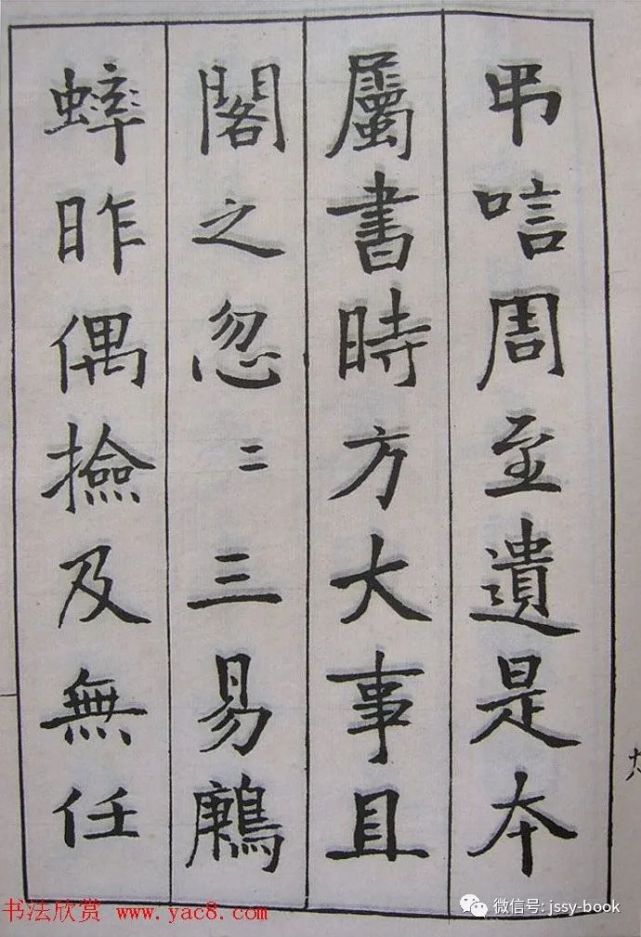 弔唁周至遺是本
屬書時方大事且
閣之忽〻三易鷓
蟀昨偶撿及無任
书法欣赏 www.yac8.com
微信号: jssy-book